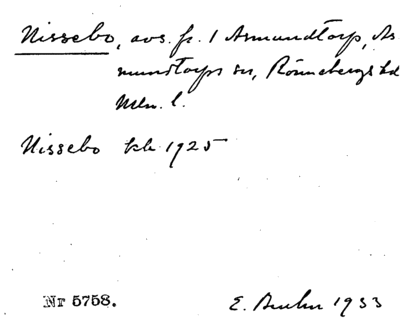 Nissebo, avs. fr. 1 Asmundtorp, As
mundtorps sn, Rönnebergs hd
Mlm. l.
Nissebo kb 1925
Nr 5758. E. Bruhn 1933